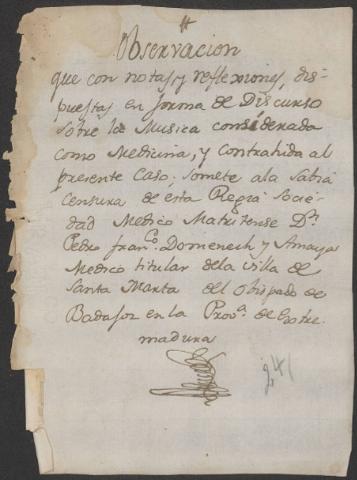 Observacion
que con notas, y reflexiones, dis=
puestas en forma de Discurso
sobre la Musica considerada
como Medicina, y contrahida al
presente Caso; somete ala Sabia
Censura de esta Regia Socie-
dad Medico Matritense Dn.
Pedro Franco. Domenech y Amaya
Medico titular dela Villa de
Santa Marta del Obispado de
Badajoz en la Prova. de Extre
madura